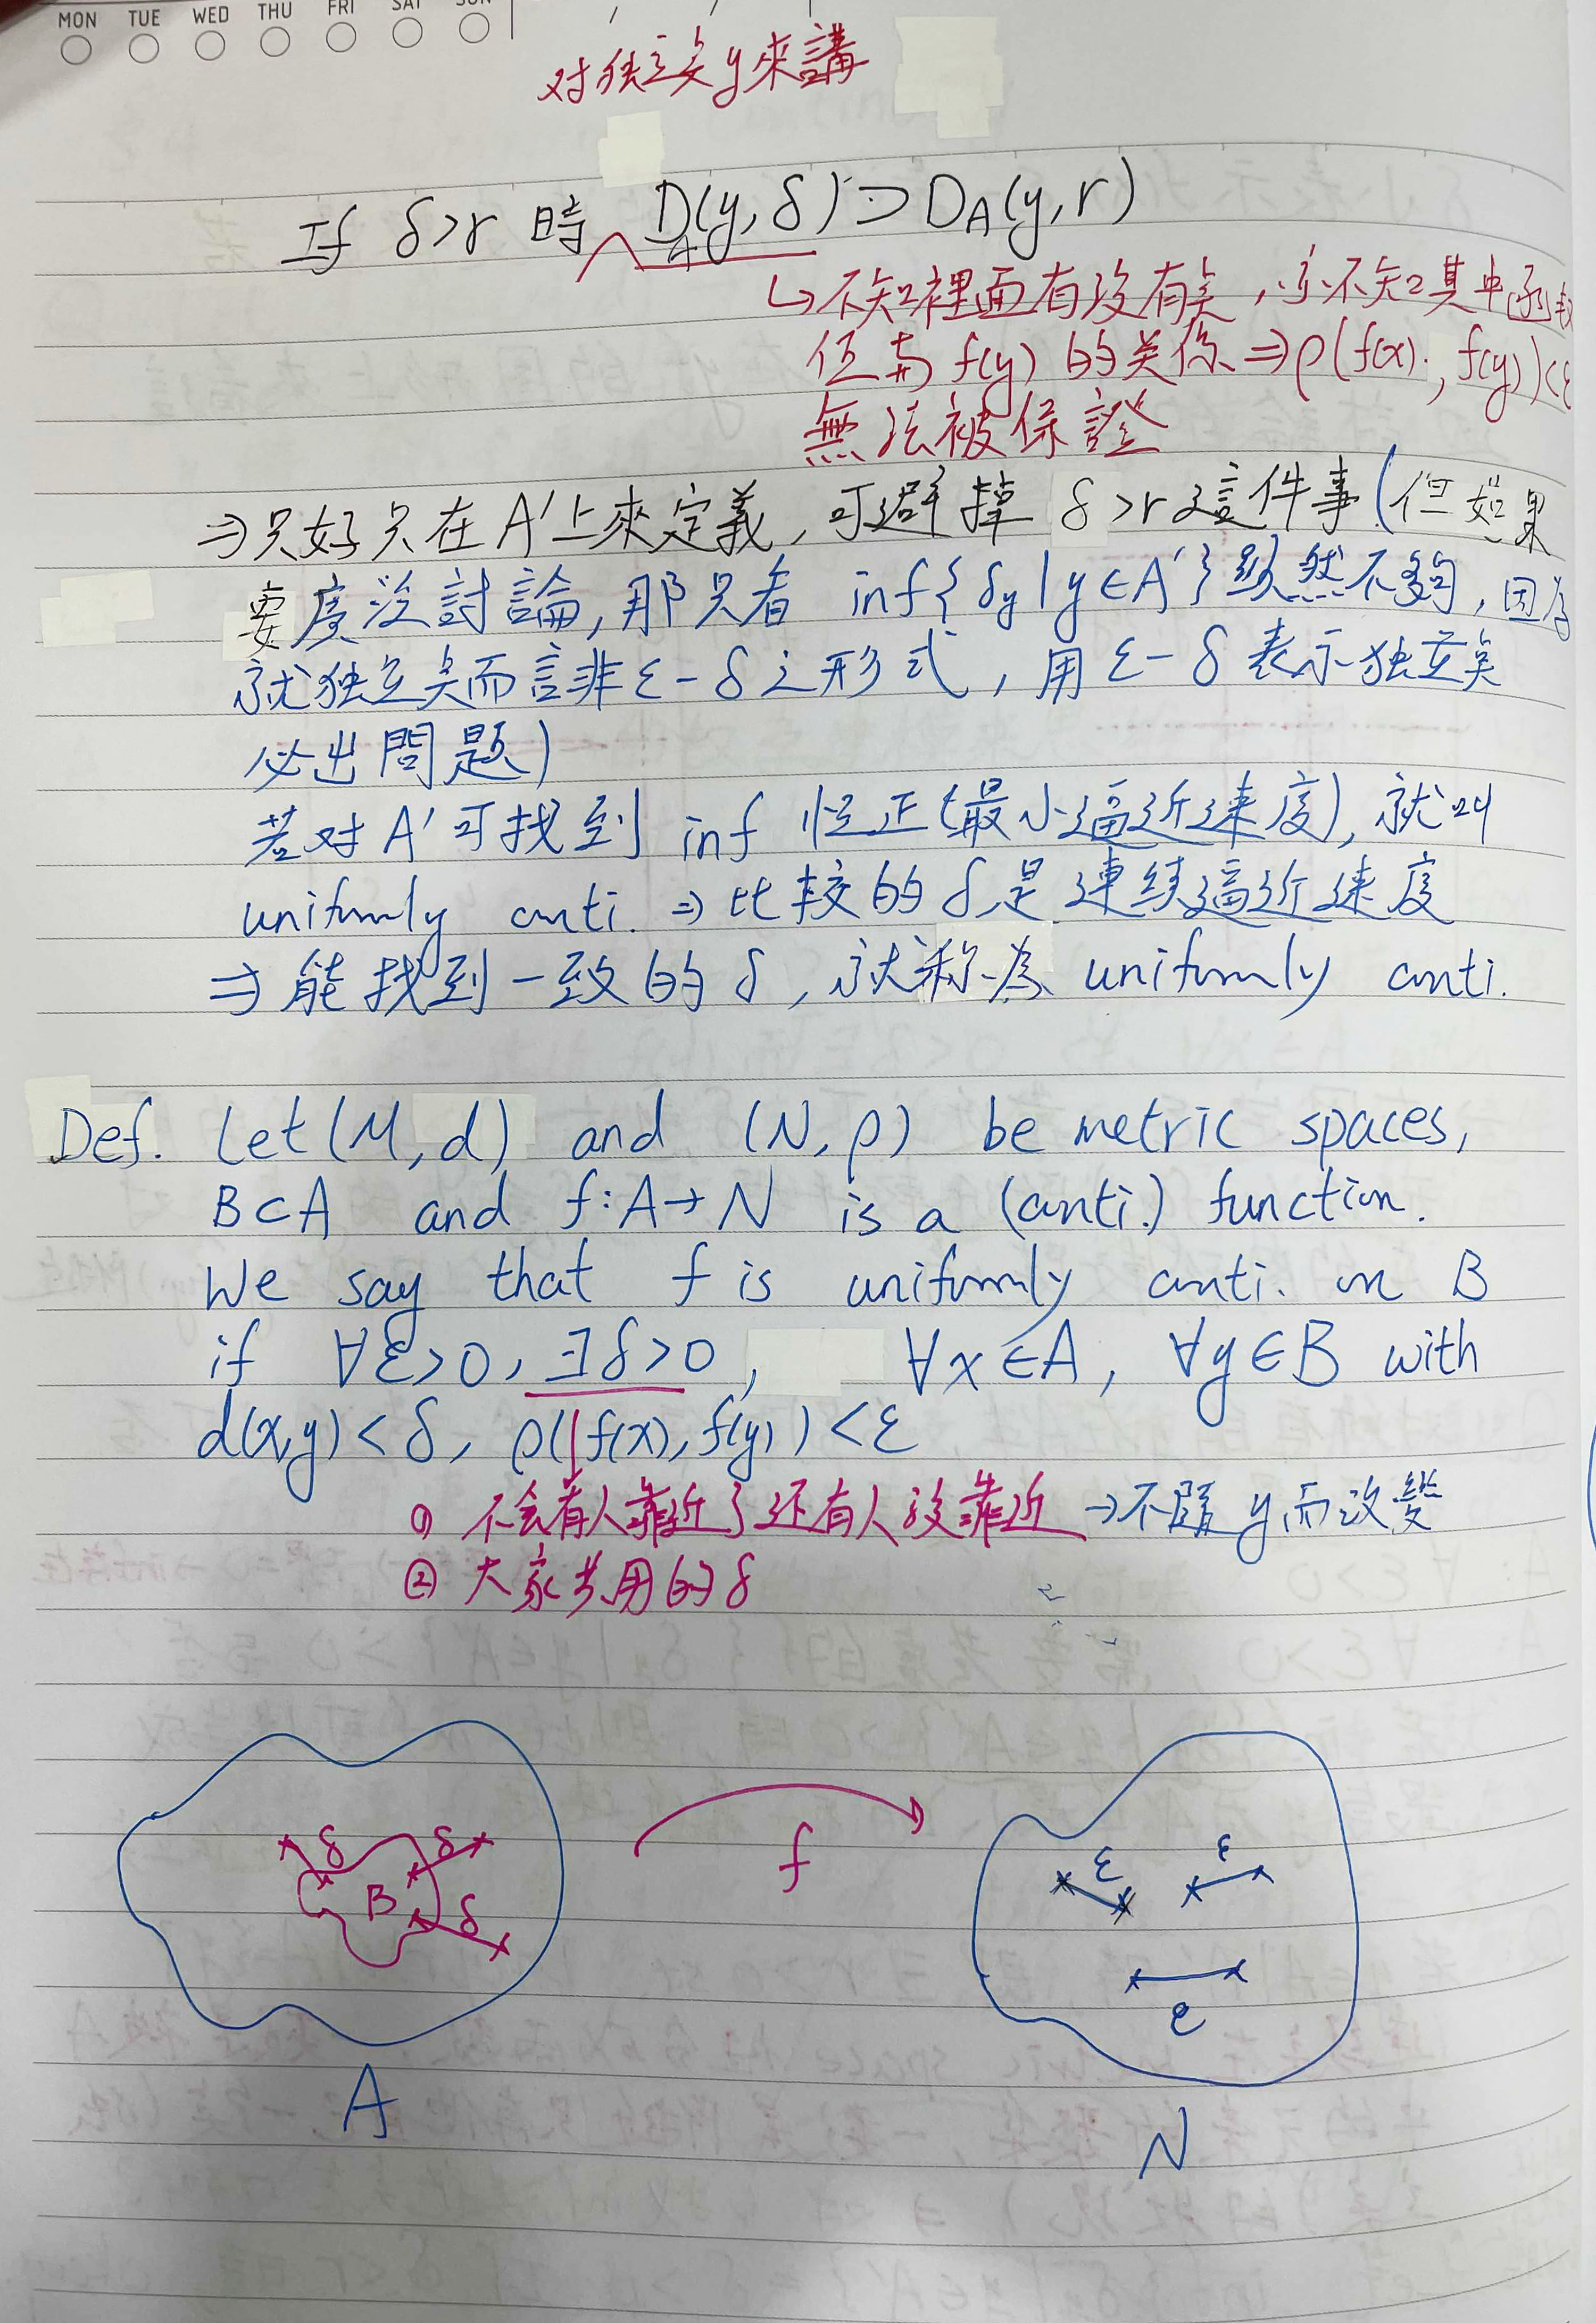 MON TUE WED THU FRI SAT SUN
对独立点y來講
If δ>r 時 D_A(y,δ)⊃D_A(y,r)
↳不知裡面有沒有点,亦不知其中函数
值与f(y)的关係⇒ρ(f(x),f(y))<ε
無法被保證
⇒只好只在A'上來定義,可避掉 δ>r 這件事(但如果
要廣泛討論,那只看 inf{δy|y∈A'}縱然不夠,因為
就独立点而言非ε-δ之形式,用ε-δ表示独立点
必出問題)
若对A'可找到 inf 恒正(最小逼近速度),就叫
uniformly conti. ⇒比較的δ是連続逼近速度
⇒能找到一致的δ,就称為 uniformly conti.
Def. Let(M,d) and (N,ρ) be metric spaces,
B⊂A and f:A→N is a (conti.) function.
We say that f is uniformly conti. on B
if ∀ε>0, ∃δ>0, ∀x∈A, ∀y∈B with
d(x,y)<δ, ρ(f(x),f(y))<ε
① 不会有人靠近了还有人没靠近→不隨y而改變
② 大家共用的δ
δ δ
B δ
f
ε ε
ε
A
N